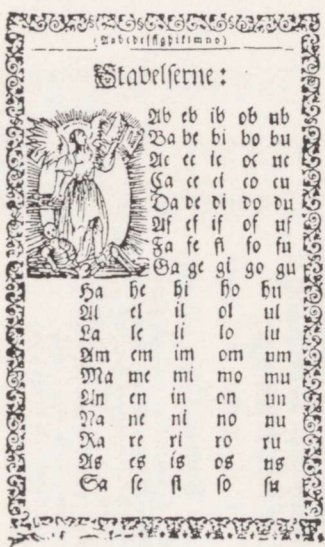 (Aabcdefghiklmno)
Stavelserne:
Ab eb ib ob ub
Ba be bi bo bu
Ac ec ic oc uc
Ca ce ci co cu
Da de di do du
Af ef if of uf
Fa fe fi fo fu
Ga ge gi go gu
Ha he hi ho hu
Al el il ol ul
La le li lo lu
Am em im om um
Ma me mi mo mu
An en in on un
Na ne ni no nu
Ra re ri ro ru
As es is os us
Sa se si so su